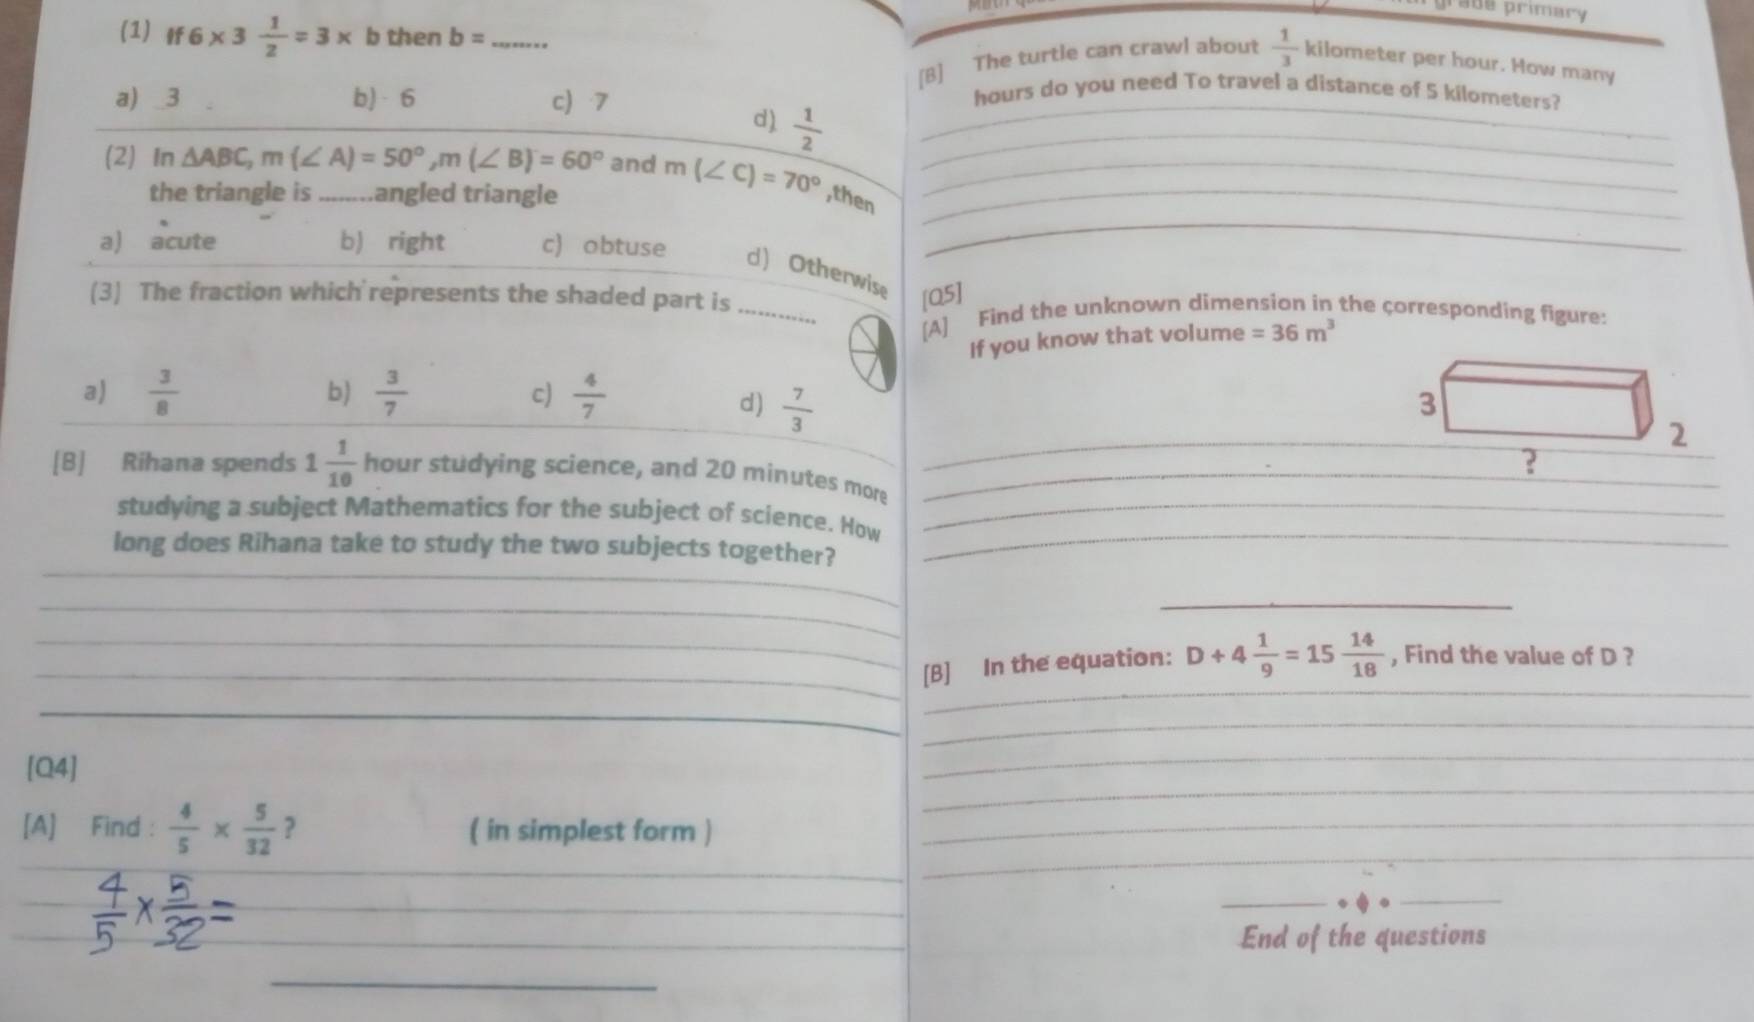 (1) If 6 × 3 1/2 = 3 × b then b = ........
a) 3 b) 6 c) 7 d) 1/2
(2) In ΔABC, m (∠ A) = 50° ,m (∠ B) = 60° and m (∠ C) = 70° ,then
the triangle is ........angled triangle
a) acute b) right c) obtuse d) Otherwise
(3) The fraction which represents the shaded part is ............
a) 3/8 b) 3/7 c) 4/7 d) 7/3
[B] Rihana spends 1 1/10 hour studying science, and 20 minutes more
studying a subject Mathematics for the subject of science. How
long does Rihana take to study the two subjects together?
[Q4]
[A] Find : 4/5 × 5/32 ? ( in simplest form )
4/5 × 5/32 =
primary
[B] The turtle can crawl about 1/3 kilometer per hour. How many
hours do you need To travel a distance of 5 kilometers?
[Q5]
[A] Find the unknown dimension in the corresponding figure:
If you know that volume = 36 m³
3
2
?
[B] In the equation: D + 4 1/9 = 15 14/18 , Find the value of D ?
End of the questions